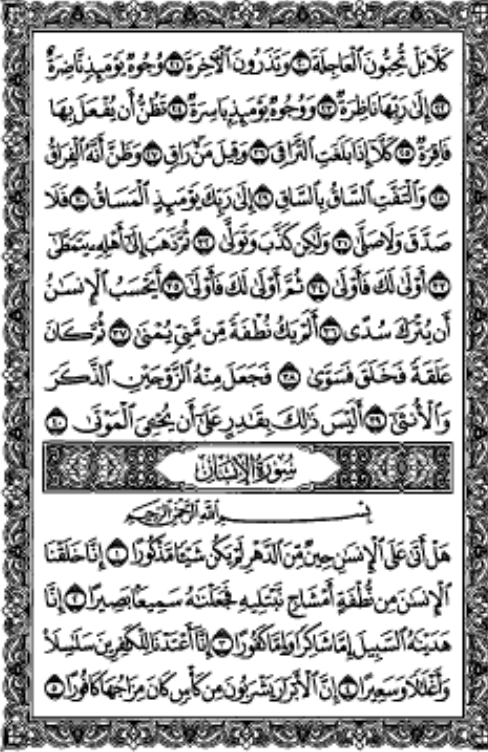 كَلَّا بَلْ تُحِبُّونَ ٱلْعَاجِلَةَ ٢٠ وَتَذَرُونَ ٱلْآخِرَةَ ٢١ وُجُوهٌ يَوْمَئِذٍ نَّاضِرَةٌ
٢٢ إِلَىٰ رَبِّهَا نَاظِرَةٌ ٢٣ وَوُجُوهٌ يَوْمَئِذٍۭ بَاسِرَةٌ ٢٤ تَظُنُّ أَن يُفْعَلَ بِهَا
فَاقِرَةٌ ٢٥ كَلَّآ إِذَا بَلَغَتِ ٱلتَّرَاقِىَ ٢٦ وَقِيلَ مَنْ رَاقٍ ٢٧ وَظَنَّ أَنَّهُ ٱلْفِرَاقُ
٢٨ وَٱلْتَفَّتِ ٱلسَّاقُ بِٱلسَّاقِ ٢٩ إِلَىٰ رَبِّكَ يَوْمَئِذٍ ٱلْمَسَاقُ ٣٠ فَلَا
صَدَّقَ وَلَا صَلَّىٰ ٣١ وَلَٰكِن كَذَّبَ وَتَوَلَّىٰ ٣٢ ثُمَّ ذَهَبَ إِلَىٰٓ أَهْلِهِۦ يَتَمَطَّىٰٓ
٣٣ أَوْلَىٰ لَكَ فَأَوْلَىٰ ٣٤ ثُمَّ أَوْلَىٰ لَكَ فَأَوْلَىٰٓ ٣٥ أَيَحْسَبُ ٱلْإِنسَٰنُ
أَن يُتْرَكَ سُدًى ٣٦ أَلَمْ يَكُ نُطْفَةً مِّن مَّنِىٍّ يُمْنَىٰ ٣٧ ثُمَّ كَانَ
عَلَقَةً فَخَلَقَ فَسَوَّىٰ ٣٨ فَجَعَلَ مِنْهُ ٱلزَّوْجَيْنِ ٱلذَّكَرَ
وَٱلْأُنثَىٰٓ ٣٩ أَلَيْسَ ذَٰلِكَ بِقَٰدِرٍ عَلَىٰٓ أَن يُحْۦِىَ ٱلْمَوْتَىٰ ٤٠
سُورَةُ الإِنسَانِ
بِسْمِ ٱللَّهِ ٱلرَّحْمَٰنِ ٱلرَّحِيمِ
هَلْ أَتَىٰ عَلَى ٱلْإِنسَٰنِ حِينٌ مِّنَ ٱلدَّهْرِ لَمْ يَكُن شَيْـًٔا مَّذْكُورًا ١ إِنَّا خَلَقْنَا
ٱلْإِنسَٰنَ مِن نُّطْفَةٍ أَمْشَاجٍ نَّبْتَلِيهِ فَجَعَلْنَٰهُ سَمِيعًۢا بَصِيرًا ٢ إِنَّا
هَدَيْنَٰهُ ٱلسَّبِيلَ إِمَّا شَاكِرًا وَإِمَّا كَفُورًا ٣ إِنَّآ أَعْتَدْنَا لِلْكَٰفِرِينَ سَلَٰسِلَا۟
وَأَغْلَٰلًا وَسَعِيرًا ٤ إِنَّ ٱلْأَبْرَارَ يَشْرَبُونَ مِن كَأْسٍ كَانَ مِزَاجُهَا كَافُورًا ٥